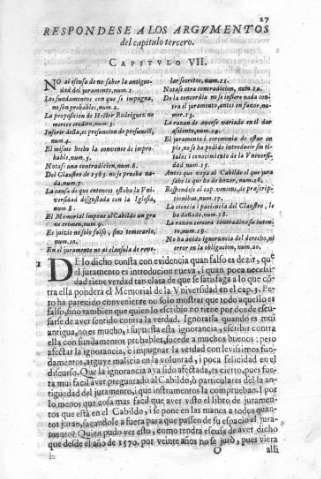 27
RESPONDESE A LOS ARGVMENTOS
del capitulo tercero.
CAPITVLO VII.
NO ai escusa de no saber la antigue-
dad del juramento, num. 1.
Los fundamentos con que se impugna,
no son probables, num. 2.
La proposicion de Hector Rodriguez no
merece credito, num. 3.
num. 4.
El mismo hecho la convence de impro-
bable, num. 5.
Notase una contradicion, num. 6.
Del Claustro de 1565. no se prueba na-
da, num. 7.
La causa de que entonces estubo la Vni-
versidad disgustada con la Iglesia,
num. 8.
El Memorial impone al Cabildo un gra-
ve crimen, num. 9.
El juizio no solo falso, sino temerario,
num. 10.
En el juramento no ai clausula de reve-
lar secreto, num. 11.
Notase otra contradicion, num. 12.
De la concordia no se infiere nada con-
tra el juramento, antes en favor, nu-
mer. 13.
La razon de averse variado en el dar
asiento, num. 14.
El juramento i ceremonia de estar en
pie, no se ha podido introducir sin ti-
tulo, i conocimiento de la Vniversi-
dad num. 15.
Antes que vaya al Cabildo el que jura
sabe lo que ha de hazer, num. 16.
Respondese al cap. veniens, de præscrip-
tionibus, num. 17.
La ciencia i paciencia del Claustro, le
ha dañado, num. 18.
La razon tercera contradice su inten-
to, num. 19.
No ha avido ignorancia del derecho, ni
error en la obligacion, num. 20.
1 DE lo dicho consta con evidencia quan falso es dezir, que
el juramento es introducion nueva, i quan poca necesi-
dad tiene verdad tan clara de que se satisfaga a lo que co-
ntra ella pondera el Memorial de la Vniversidad en el cap. 3. Pero
ha parecido conveniente no solo mostrar que todo aquello es
falso, sino tambien que quien lo escribio no tiene por donde escu-
sarse de aver sentido contra la verdad. Ignorarla quando es mui
antigua, no es mucho, i si justa esta ignorancia, escribir contra
ella con fundamentos probables, sucede a muchos buenos: pero
afectar la ignorancia, e impugnar la verdad con levisimos funda-
mentos, arguye malicia en la voluntad, i poca felicidad en el
discurso. Que la ignorancia aya sido afectada, es cierto, pues fue-
ra mui facil aver preguntado al Cabildo, o particulares del la an-
tiguedad del juramento, i que instrumentos la comprueban. I por
lo menos que cosa mas facil que aver visto el libro de juramen-
tos que está en el Cabildo, i se pone en las manos a todos quan-
tos juran, sacandole a fuera para que paseen de su espacio el jura-
mento? Quien pudo ver esto, como tendra escusa de aver dicho
que desde el año de 1570. por veinte años no se juró, pues viera
O
alli